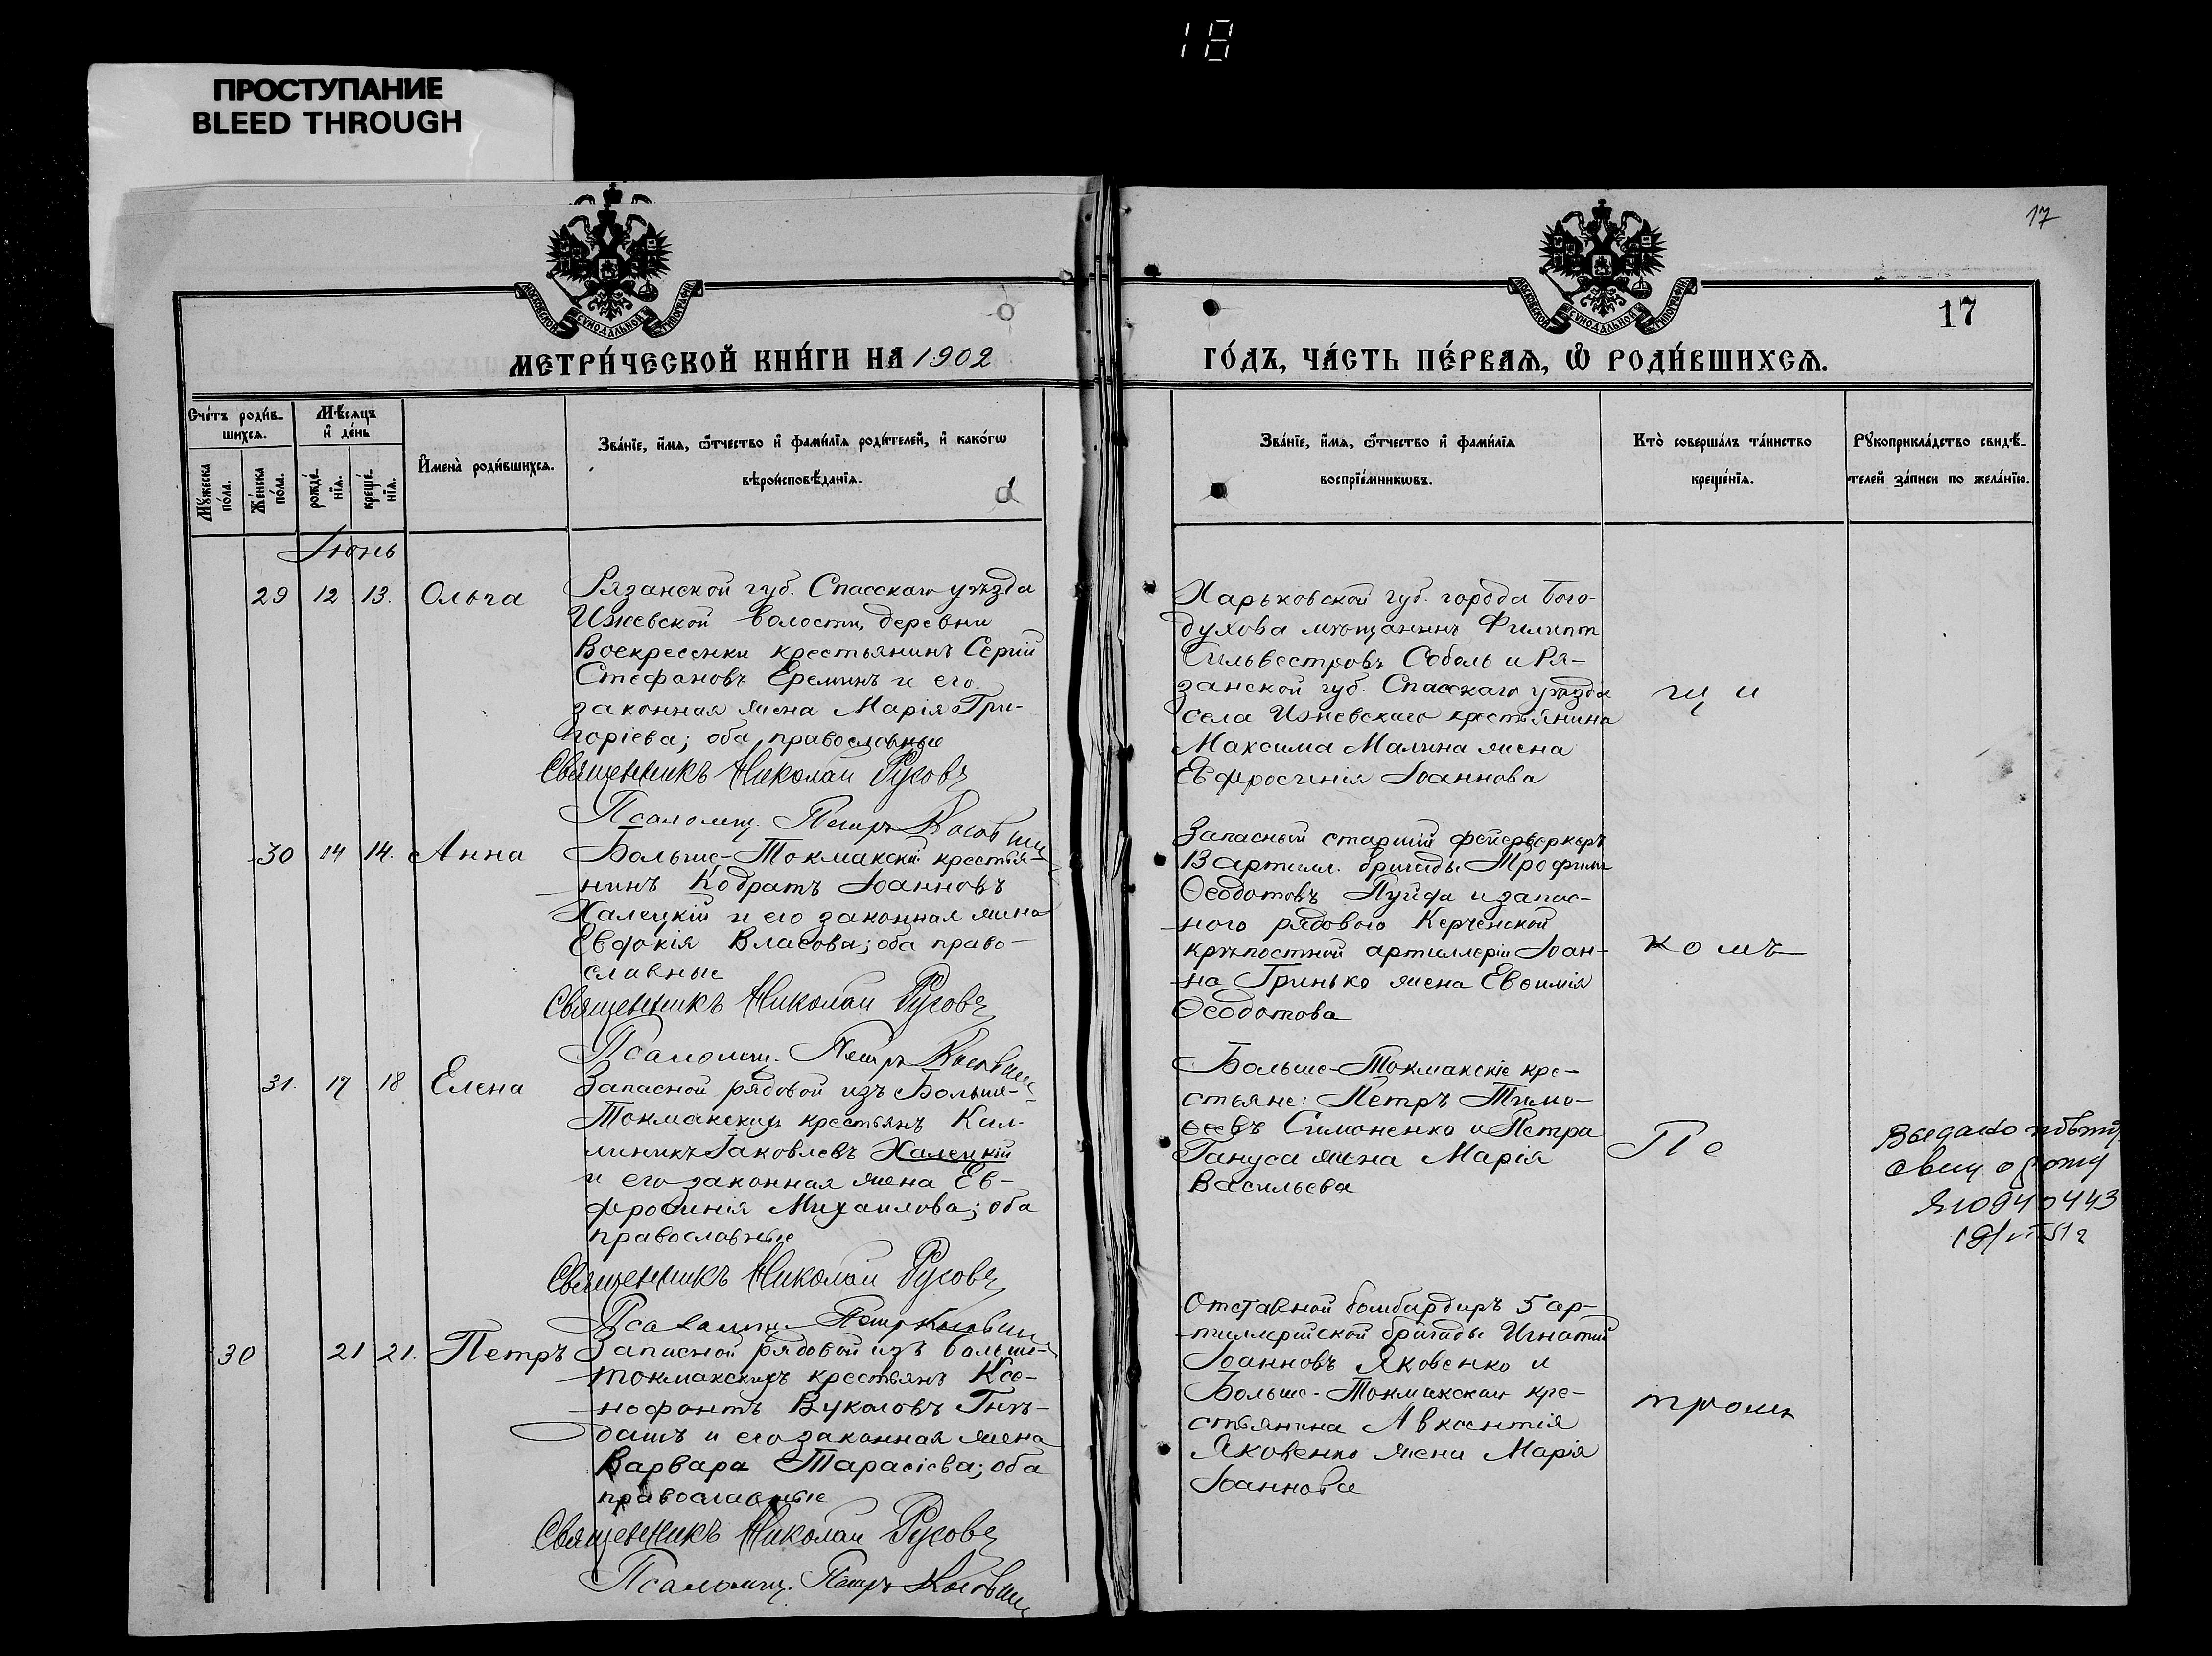 18
ПРОСТУПАНИЕ
BLEED THROUGH
17
МОСКОВСКОЙ СѴНОДАЛЬНОЙ ТИПОГРАФІИ
МОСКОВСКОЙ СѴНОДАЛЬНОЙ ТИПОГРАФІИ
17
МЕТРИ́ЧЕСКОЙ КНИ́ГИ НА 1902
ГО́ДЪ, ЧА́СТЬ ПЕ́РВАѦ, Ѡ҆ РОДИ́ВШИХСѦ.
Сче́тъ роди́в-
шихсѧ.
Мꙋ́жеска
по́ла.
Же́нска
по́ла.
Мѣ́сѧцъ
и҆ де́нь
рожде́-
нїѧ.
креще́-
нїѧ.
И҆мена̀ роди́вшихсѧ.
Зва́нїе, и҆́мѧ, ѻ҆́тчество и҆ фами́лїѧ роди́телей, и҆ како́гѡ
вѣроисповѣ́данїѧ.
Зва́нїе, и҆́мѧ, ѻ҆́тчество и҆ фами́лїѧ
воспрїе́мникѡвъ.
Кто̀ соверша́лъ та́инство
креще́нїѧ.
Рꙋкоприкла́дство свидѣ́-
телей за́писи по жела́нїю.
Іюнь
29 12 13. Ольга
Рязанской губ. Спасскаго уѣзда
Ижевской волости, деревни
Воскресенки крестьянинъ Сергій
Стефановъ Ереминъ и его
законная жена Марія Гри-
горіева; оба православные
Священникъ Николай Русовъ
Псаломщ. Петръ
Харьковской губ. города Бого-
духова мѣщанинъ Филиппъ
Сильвестровъ Соболь и Ря-
занской губ. Спасскаго уѣзда
села Ижевскаго крестьянина
Максима Малина жена
Евфросинія Іоаннова
щ и
30 14 14. Анна
Больше-Токмакскій крестья-
нинъ Кодратъ Іоанновъ
Халецкій и его законная жена
Евдокія Власова; оба право-
славные
Священникъ Николай Русовъ
Псаломщ. Петръ
Запасный старшій фейерверкеръ
13 артилл. бригады Трофимъ
Ѳеодотовъ Пуйда и запас-
ного рядового Керченской
крѣпостной артиллеріи Іоан-
на Гринько жена Евѳимія
Ѳеодотова
комъ
31. 17 18 Елена
Запасной рядовой изъ Больше-
Токмакскихъ крестьянъ Кал-
линикъ Іаковлевъ Халецкій
и его законная жена Ев-
фросинія Михаилова; оба
православные
Священникъ Николай Русовъ
Псаломщ. Петръ
Больше-Токмакскіе кре-
стьяне: Петръ Тимо-
ѳеевъ Симоненко и Петра
Гануса жена Марія
Васильева
Пе
Выдано
свид о рожд
ЯЮ 940443
30 21 21. Петръ
Запасной рядовой изъ Больше-
токмакскихъ крестьянъ Ксе-
нофонтъ Вуколовъ Гнѣ-
дашъ и его законная жена
Варвара Тарасіева; оба
православные
Священникъ Николай Русовъ
Псаломщ. Петръ
Отставной бомбардиръ 5 ар-
тиллерійской бригады Игнатій
Іоанновъ Яковенко и
Больше-Токмакскаго кре-
стьянина Авксентія
Яковенко жена Марія
Іоаннова
тромъ